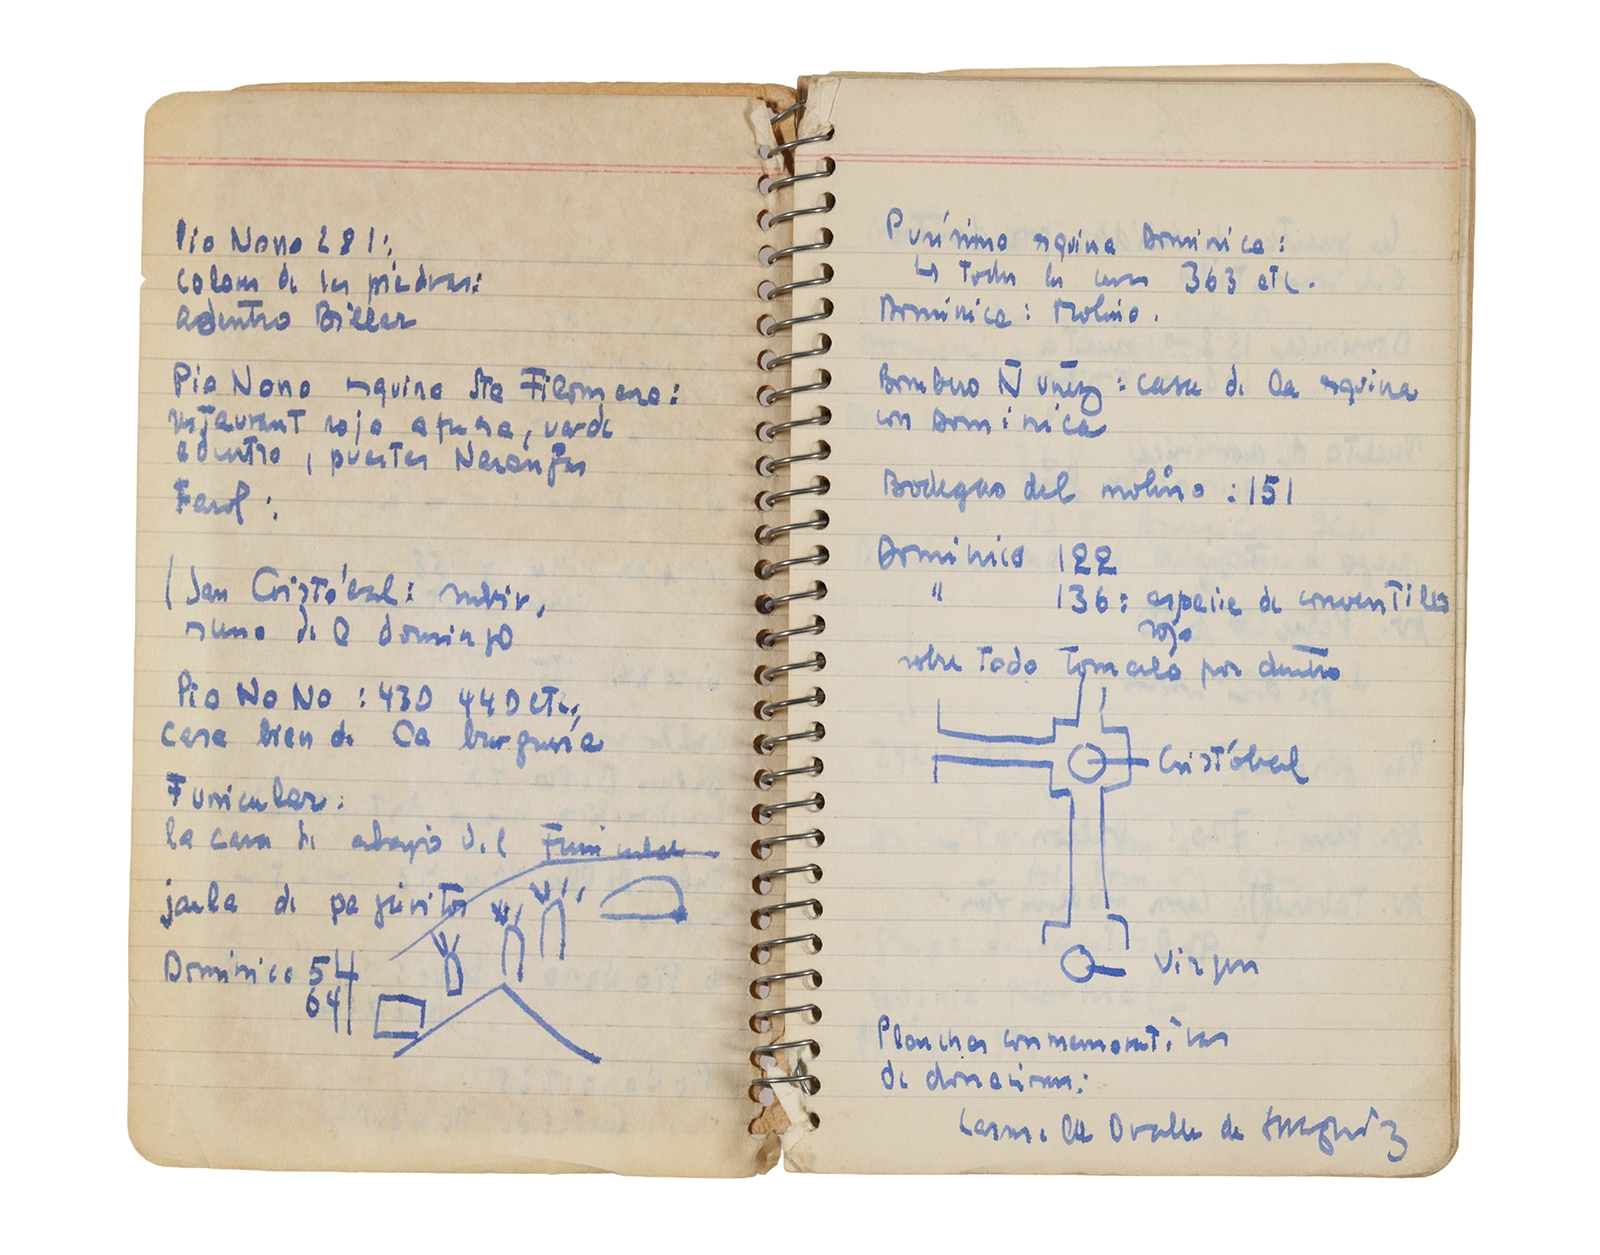 Pio Nono 281:,
color de las piedras:
adentro Billar
Pio Nono esquina Sta Filomena:
restaurant rojo afuera, verde
adentro, puertas Naranjas
Farol:
(San Cristóbal: subir,
domingo
Pio NoNo: 430 440 etc,
casa bien de la burguesía
Funicular:
la casa de abajo del Funicular
jaula de pajaritos
Dominica 54
64
Purísima esquina Dominica:
↳ Todas las casas 363 etc.
Dominica: Molino.
Bombero Ñuñez: casa de la esquina
con Dominica
Bodegas del molino: 151
Dominica 122
" 136: especie de conventillo
rojo
sobre Todo tomarlo por dentro
Cristóbal
Virgen
Planchas conmemorativas
de donaciones:
Ovalle de